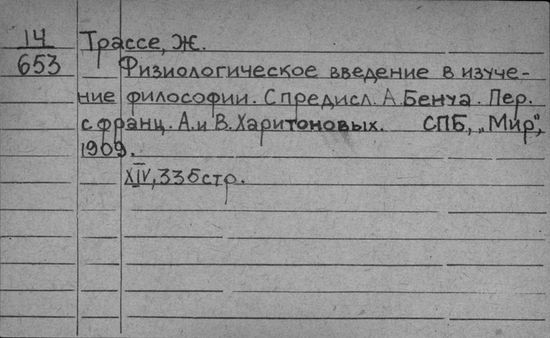 14
653
Трассе, Ж.
Физиологическое введение в изуче-
ние философии. С предисл. А. Бенуа. Пер.
с франц. А. и В. Харитоновых. СПБ, „Мир",
1909.
XIV, 336 стр.